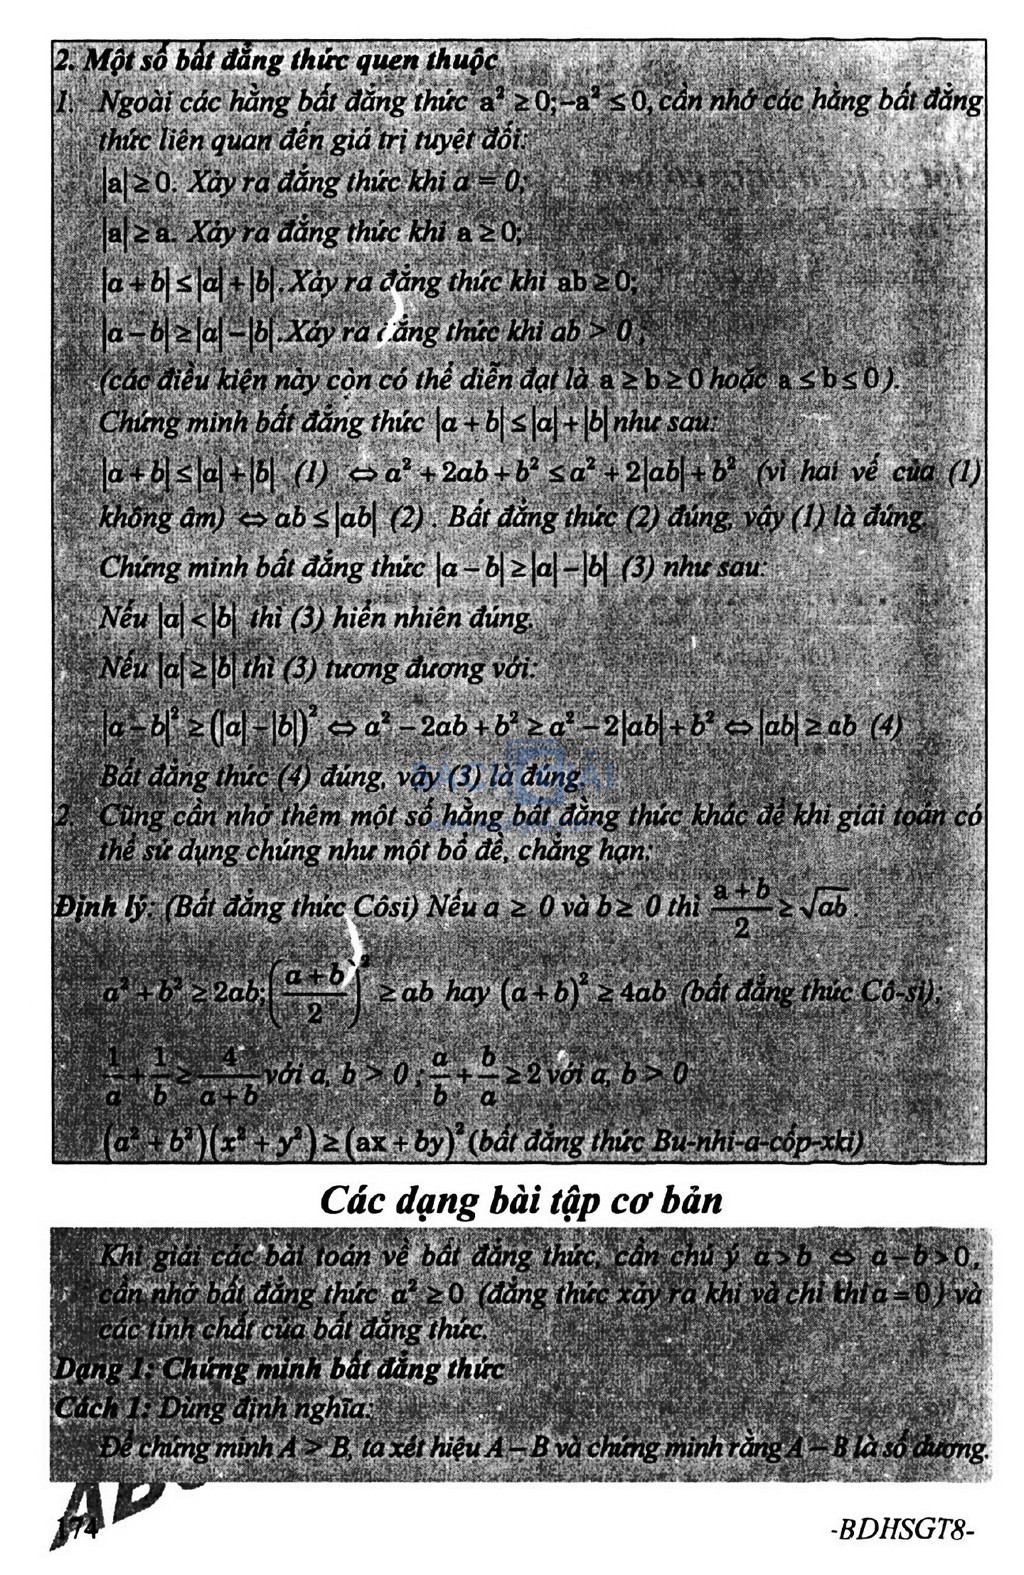 2. Một số bất đẳng thức quen thuộc
1. Ngoài các hằng bất đẳng thức a² ≥ 0; –a² ≤ 0, cần nhớ các hằng bất đẳng
thức liên quan đến giá trị tuyệt đối:
|a| ≥ 0. Xảy ra đẳng thức khi a = 0;
|a| ≥ a. Xảy ra đẳng thức khi a ≥ 0;
|a + b| ≤ |a| + |b|. Xảy ra đẳng thức khi ab ≥ 0;
|a – b| ≥ |a| – |b|. Xảy ra đẳng thức khi ab > 0;
(các điều kiện này còn có thể diễn đạt là a ≥ b ≥ 0 hoặc a ≤ b ≤ 0).
Chứng minh bất đẳng thức |a + b| ≤ |a| + |b| như sau:
|a + b| ≤ |a| + |b| (1) ⇔ a² + 2ab + b² ≤ a² + 2|ab| + b² (vì hai vế của (1)
không âm) ⇔ ab ≤ |ab| (2). Bất đẳng thức (2) đúng, vậy (1) là đúng.
Chứng minh bất đẳng thức |a – b| ≥ |a| – |b| (3) như sau:
Nếu |a| < |b| thì (3) hiển nhiên đúng.
Nếu |a| ≥ |b| thì (3) tương đương với:
|a – b|² ≥ (|a| – |b|)² ⇔ a² – 2ab + b² ≥ a² – 2|ab| + b² ⇔ |ab| ≥ ab (4)
Bất đẳng thức (4) đúng, vậy (3) là đúng.
2. Cũng cần nhớ thêm một số hằng bất đẳng thức khác để khi giải toán có
thể sử dụng chúng như một bổ đề, chẳng hạn:
Định lý: (Bất đẳng thức Côsi) Nếu a ≥ 0 và b ≥ 0 thì (a + b)/2 ≥ √ab.
a² + b² ≥ 2ab; ((a + b)/2)² ≥ ab hay (a + b)² ≥ 4ab (bất đẳng thức Cô-si);
1/a + 1/b ≥ 4/(a + b) với a, b > 0; a/b + b/a ≥ 2 với a, b > 0
(a² + b²)(x² + y²) ≥ (ax + by)² (bất đẳng thức Bu-nhi-a-cốp-xki)
Các dạng bài tập cơ bản
Khi giải các bài toán về bất đẳng thức, cần chú ý a > b ⇔ a – b > 0,
cần nhớ bất đẳng thức a² ≥ 0 (đẳng thức xảy ra khi và chỉ khi a = 0) và
các tính chất của bất đẳng thức.
Dạng 1: Chứng minh bất đẳng thức
Cách 1: Dùng định nghĩa:
Để chứng minh A > B, ta xét hiệu A – B và chứng minh rằng A – B là số dương.
174
-BDHSGT8-